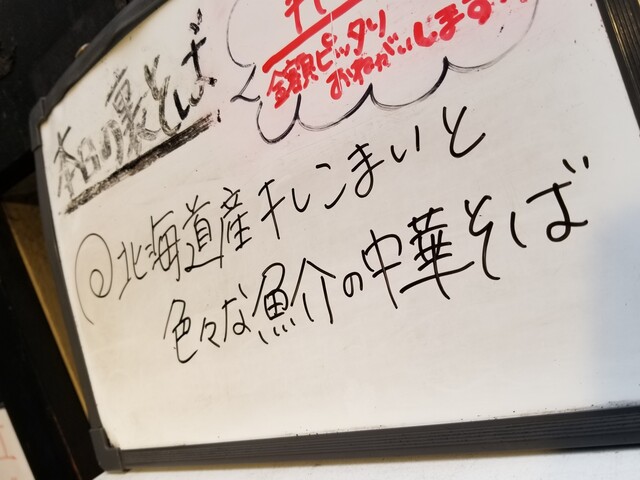 本日の裏そば
金額ピッタリ
おねがいします
北海道産キレンこまいと
色々な魚介の中華そば